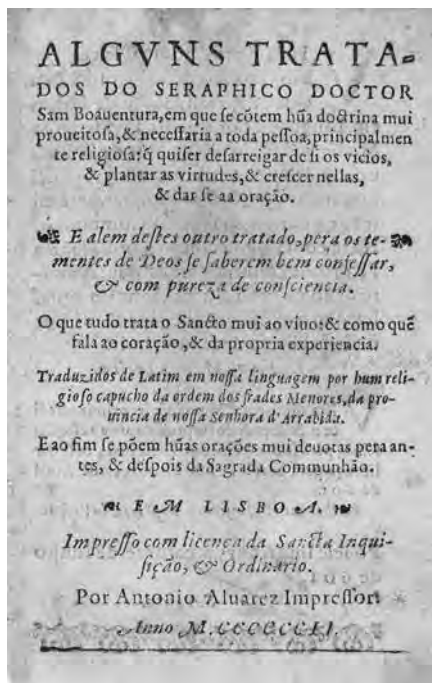 ALGVNS TRATA-
DOS DO SERAPHICO DOCTOR
Sam Boauentura, em que ſe cõtem hũa doctrina mui
proueitoſa, & neceſſaria a toda peſſoa, principalmen
te religioſa: q̃ quiſer deſarreigar de ſi os vicios,
& plantar as virtudes, & creſcer nellas,
& dar ſe aa oração.
E alem deſtes outro tratado, pera os te-
mentes de Deos ſe ſaberem bem confeſſar,
& com pureza de conſciencia.
O que tudo trata o Sancto mui ao viuo: & como quẽ
fala ao coração, & da propria experiencia.
Traduzidos de Latim em noſſa linguagem por hum reli-
gioſo capucho da ordem dos frades Menores, da pro-
uincia de noſſa Senhora d'Arrabida.
E ao fim ſe põem hũas orações mui deuotas pera an-
tes, & deſpois da Sagrada Communhão.
EM LISBOA.
Impreſſo com licença da Sancta Inqui-
ſição, & Ordinario.
Por Antonio Aluarez Impreſſor.
Anno